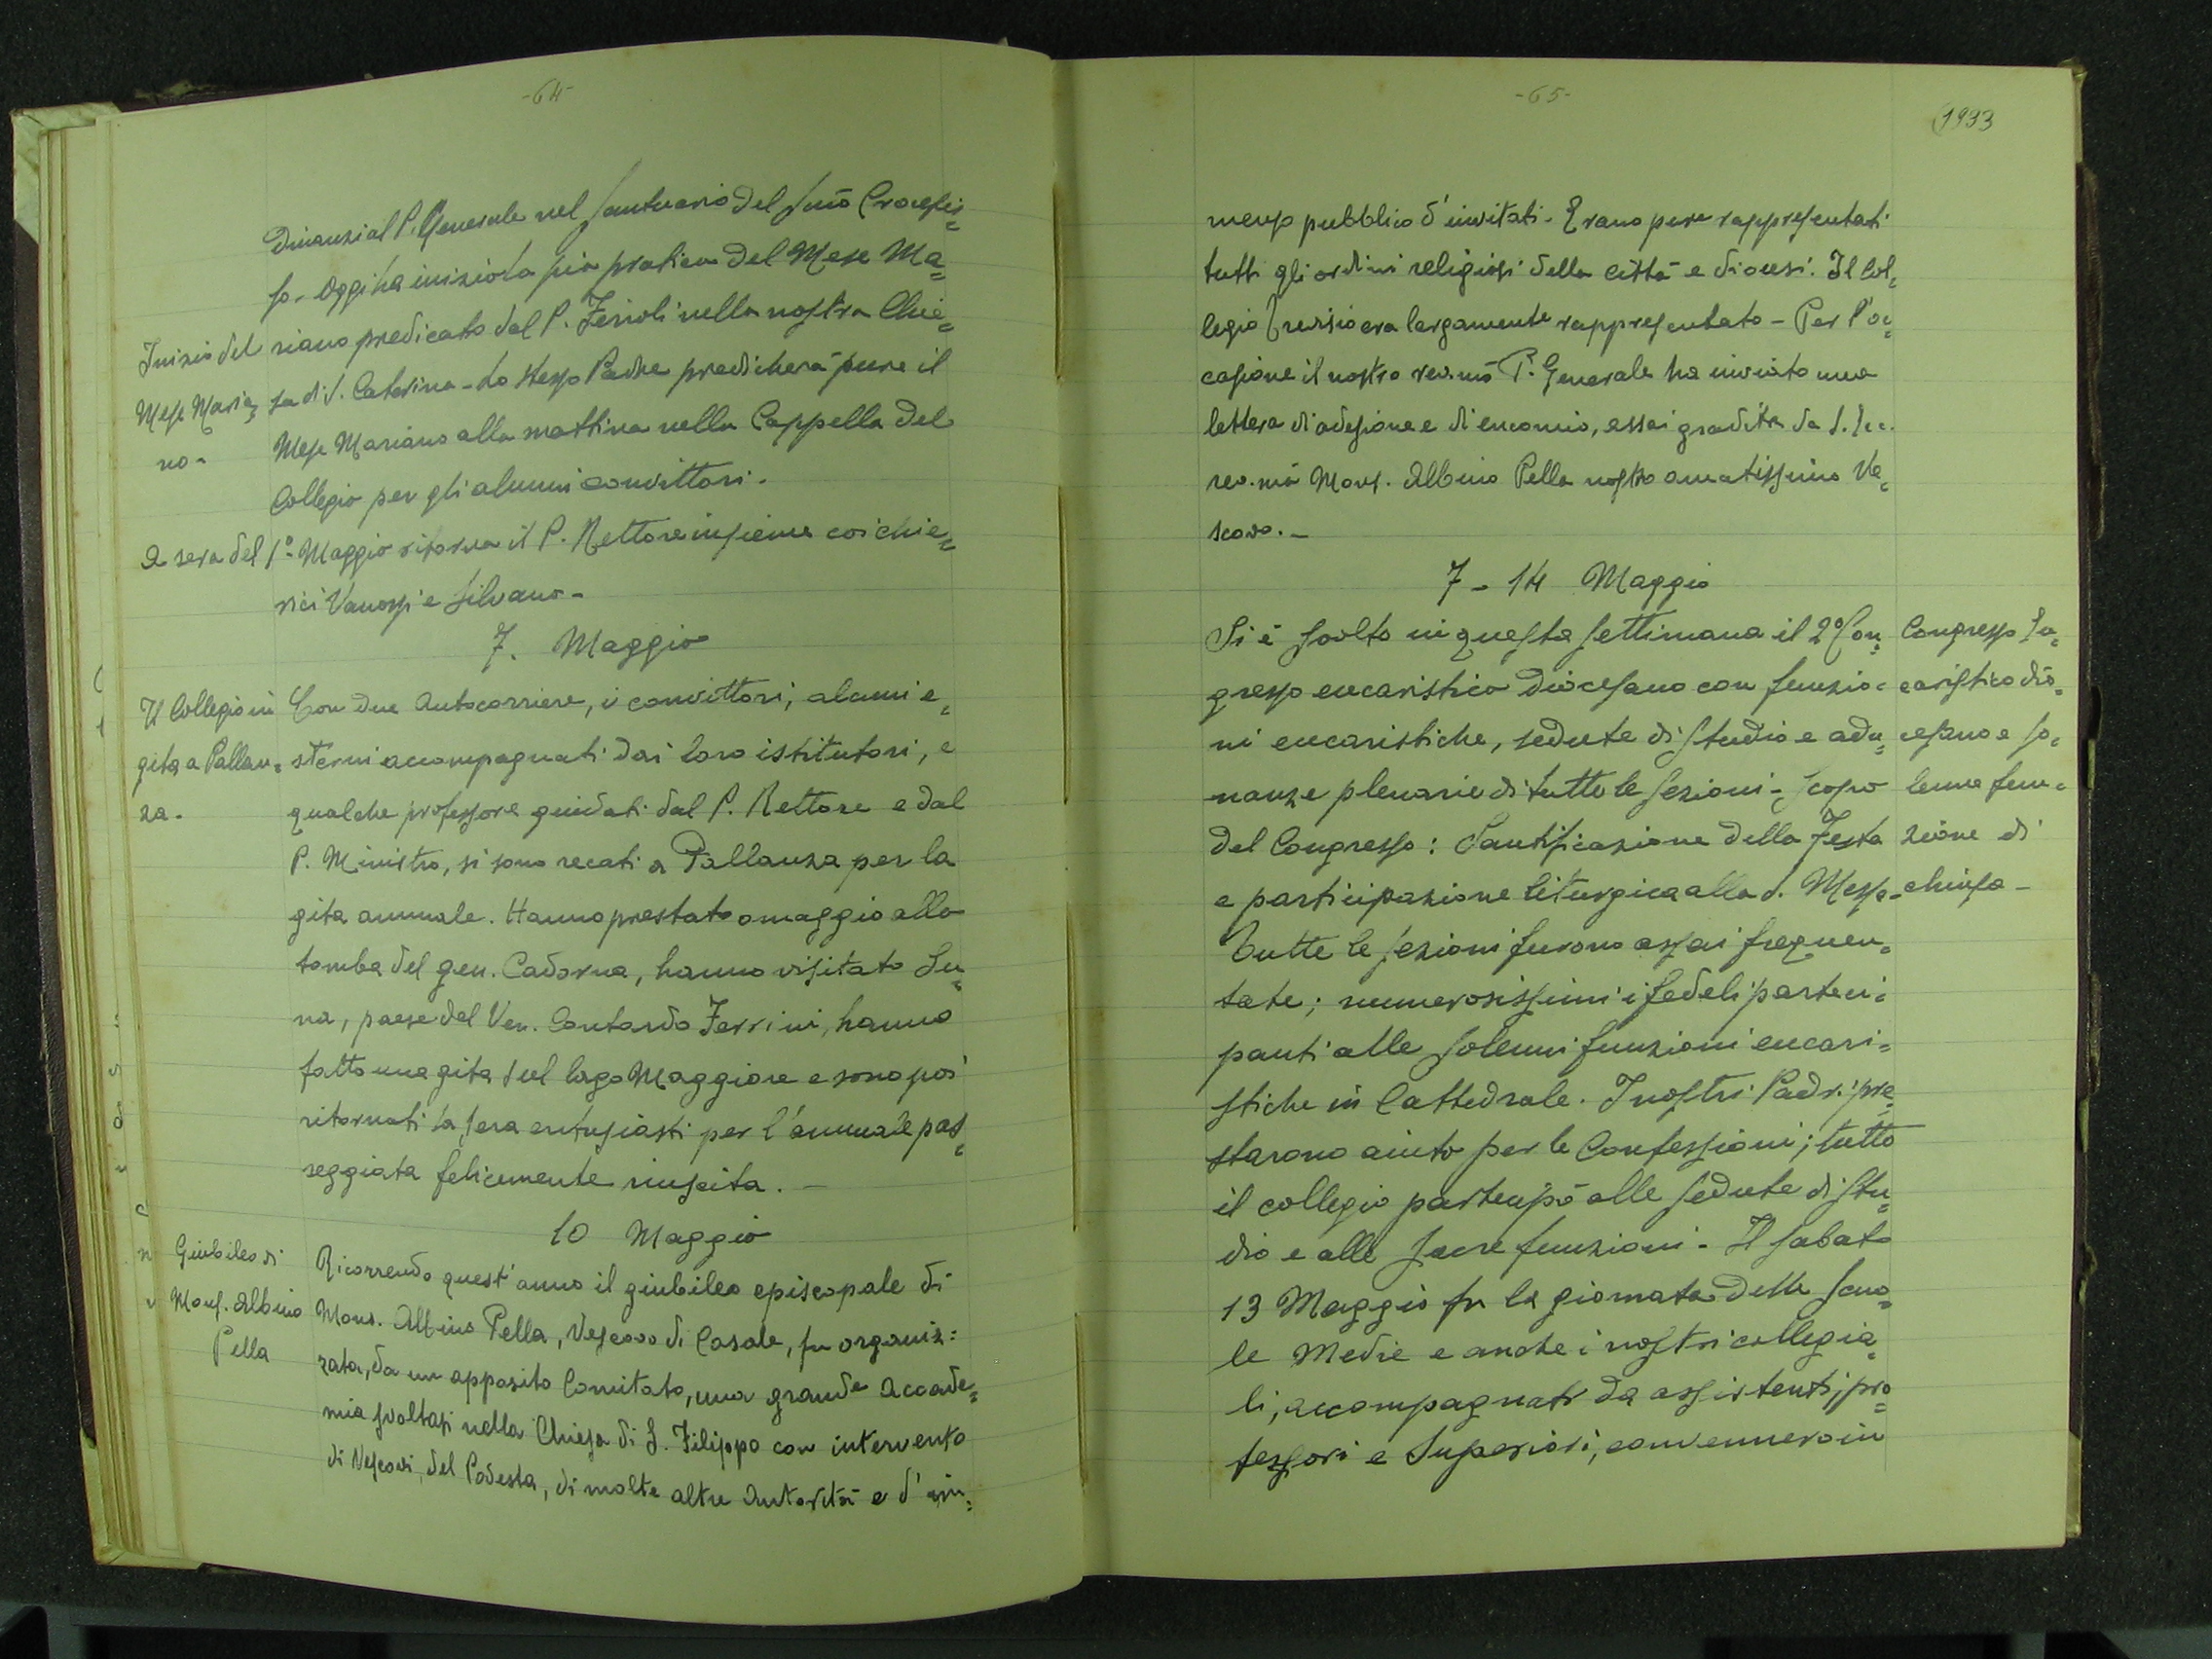 -64-
dinanzi al P. Generale nel Santuario del Smo Crocefis=
so. Oggi ha inizio la pia pratica del Mese Ma=
Inizio del
riano predicato dal P. Ferioli nella nostra Chie=
Mese Maria=
sa di S. Caterina - Lo stesso Padre predicherà pure il
no-
Mese Mariano alla mattina nella Cappella del
Collegio per gli alunni convittori.
A sera del 1° Maggio ritorna il P. Rettore insieme coi chie=
rici Vanossi e Silvano-
7. Maggio
Il Collegio in
Con due Autocorriere, i convittori, alunni e=
gita a Pallan=
sterni accompagnati dai loro istitutori, e
za.
qualche professore guidati dal P. Rettore e dal
P. Ministro, si sono recati a Pallanza per la
gita annuale. Hanno prestato omaggio alla
tomba del gen. Cadorna, hanno visitato Su=
na, paese del Ven. Contardo Ferrini, hanno
fatto una gita sul lago Maggiore e sono poi
ritornati la sera entusiasti per l'annuale pas=
seggiata felicemente riuscita. -
10 Maggio
Giubileo di
Ricorrendo quest'anno il giubileo episcopale di
Mons. Albino
Mons. Albino Pella, Vescovo di Casale, fu organiz=
Pella
zata, da un apposito Comitato, una grande Accade=
mia svoltasi nella Chiesa di S. Filippo con intervento
di Vescovi, del Podestà, di molte altre Autorità e d'im=
-65-
1933
menso pubblico d'invitati. Erano pure rappresentati
tutti gli ordini religiosi della città e diocesi. Il Col=
legio Trevisio era largamente rappresentato - Per l'oc=
casione il nostro rev.mo P. Generale ha inviato una
lettera di adesione e di encomio, assai gradita da S. Ecc.
rev.ma Mons. Albino Pella nostro amatissimo Ve=
scovo. -
7 - 14 Maggio
Si è svolto in questa settimana il 2° Con=
Congresso Eu=
gresso eucaristico diocesano con funzio=
caristico dio=
ni eucaristiche, sedute di studio e adu=
cesano e so=
nanze plenarie di tutte le sezioni - Scopo
lenne fun=
del Congresso: Santificazione della Festa
zione di
e participazione liturgica alla S. Messa-
chiusa -
Tutte le sezioni furono assai frequen=
tate; numerosissimi i fedeli parteci=
panti alle solenni funzioni eucari=
stiche in Cattedrale. I nostri Padri pre=
starono aiuto per le Confessioni; tutto
il collegio partecipò alle sedute di stu=
dio e alle sacre funzioni - Il sabato
13 Maggio fu la giornata delle Scuo=
le Medie e anche i nostri collegia=
li, accompagnati da assistenti, pro=
fessori e Superiori, convennero in